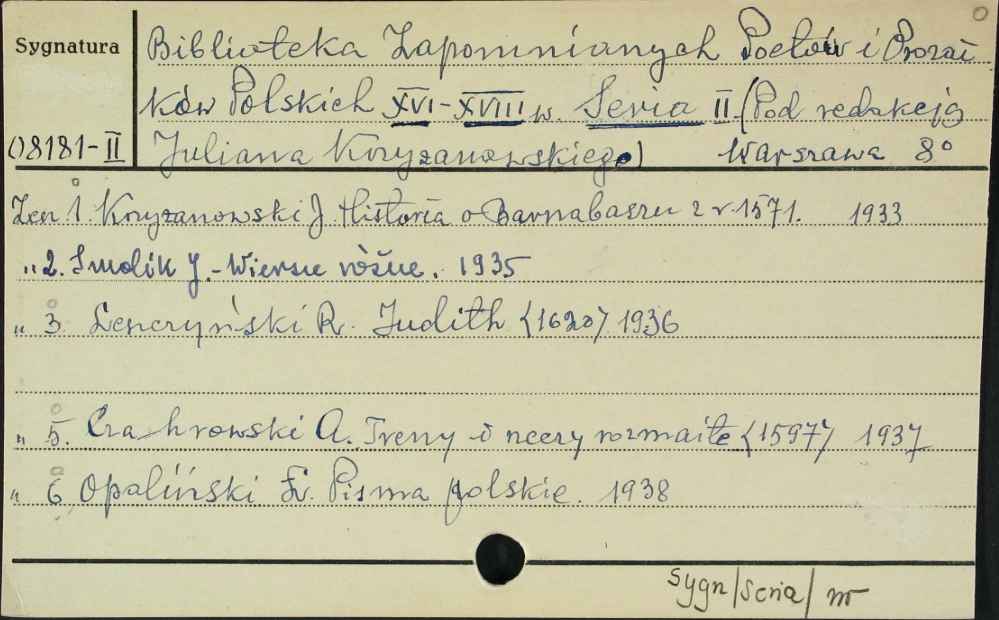 Sygnatura
Biblioteka Zapomnianych Poetów i Prozai
ków Polskich XVI-XVIII w. Seria II (Pod redakcją
08181-II
Juliana Krzyżanowskiego) Warszawa 8°
Zesz 1. Krzyżanowski J. Historia o Barnabaszu z r 1571. 1933
„ 2. Smolik J. - Wiersze różne. 1935
„ 3 Leszczyński R. Judith (1620) 1936
„ 5. Czahrowski A. Treny i rzeczy rozmaite (1597) 1937
„ 6 Opaliński Ł. Pisma polskie. 1938
Sygn/Seria/nr